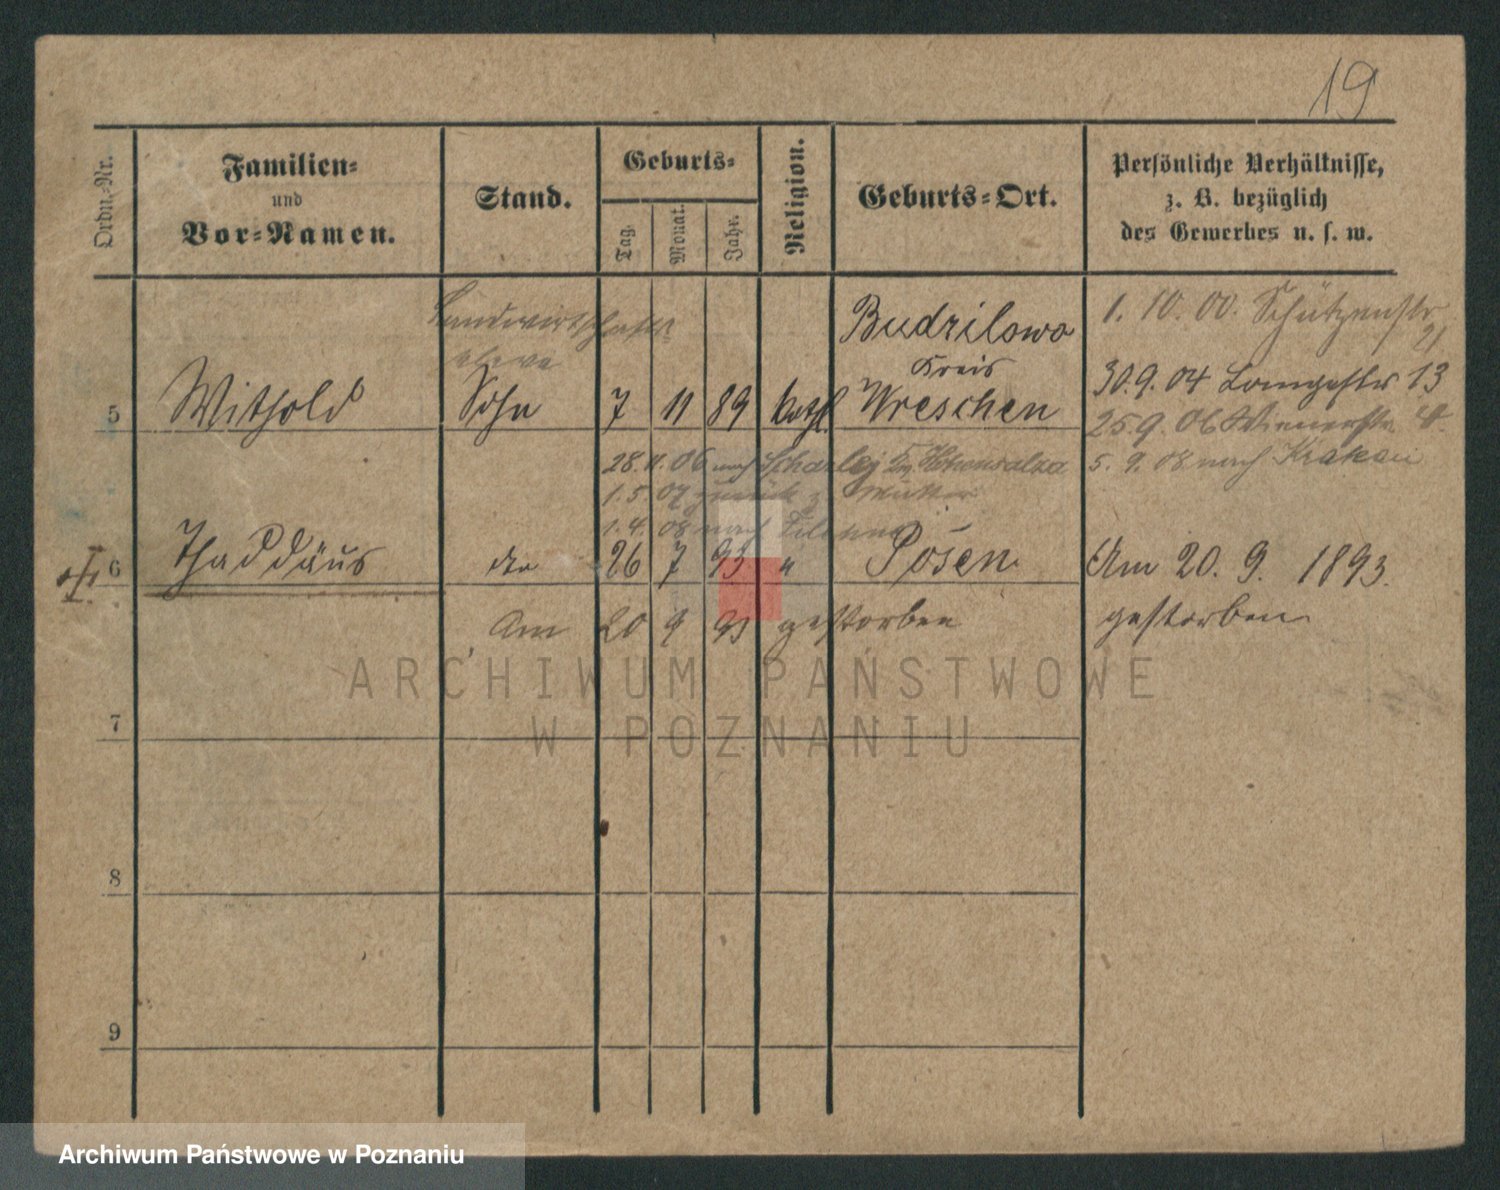 19
Ordn.-Nr.
Familien-
und
Vor-Namen.
Stand.
Geburts-
Tag.
Monat.
Jahr.
Religion.
Geburts-Ort.
Persönliche Verhältnisse,
z. B. bezüglich
des Gewerbes u. s. w.
Landwirtschafts
eleve
Budzilowo
Kreis
1. 10. 00. Schützenstr
21
5 Withold Sohn 7 11 89 kathl Wreschen 30.9.04 Langestr 13
25.9.06 Wienerstr
28.11.06 nach Scharlej Hohensalza 5. 9. 08 nach Krakau
1.5.07 zurück z Mutter
1.4.08 nach
6 Thaddäus 26 7 93 " Posen Am 20. 9. 1893.
Am 20 9 93 gestorben gestorben
7
8
9
ARCHIWUM PAŃSTWOWE
W POZNANIU
Archiwum Państwowe w Poznaniu